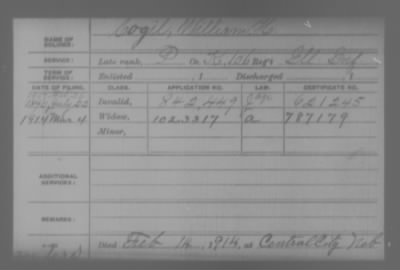 NAME OF SOLDIER: Cogil, William H
SERVICE: Late rank, P Co. K, 106 Reg't Ill Inf
TERM OF SERVICE: Enlisted , 1 Discharged , 1
DATE OF FILING. CLASS. APPLICATION NO. LAW. CERTIFICATE NO.
July 22 Invalid, 842,449 621245
1914 Mar 4 Widow, 1023317 a 787179
Minor,
ADDITIONAL SERVICES:
REMARKS:
Died Feb 14, 1914, at Central City Neb